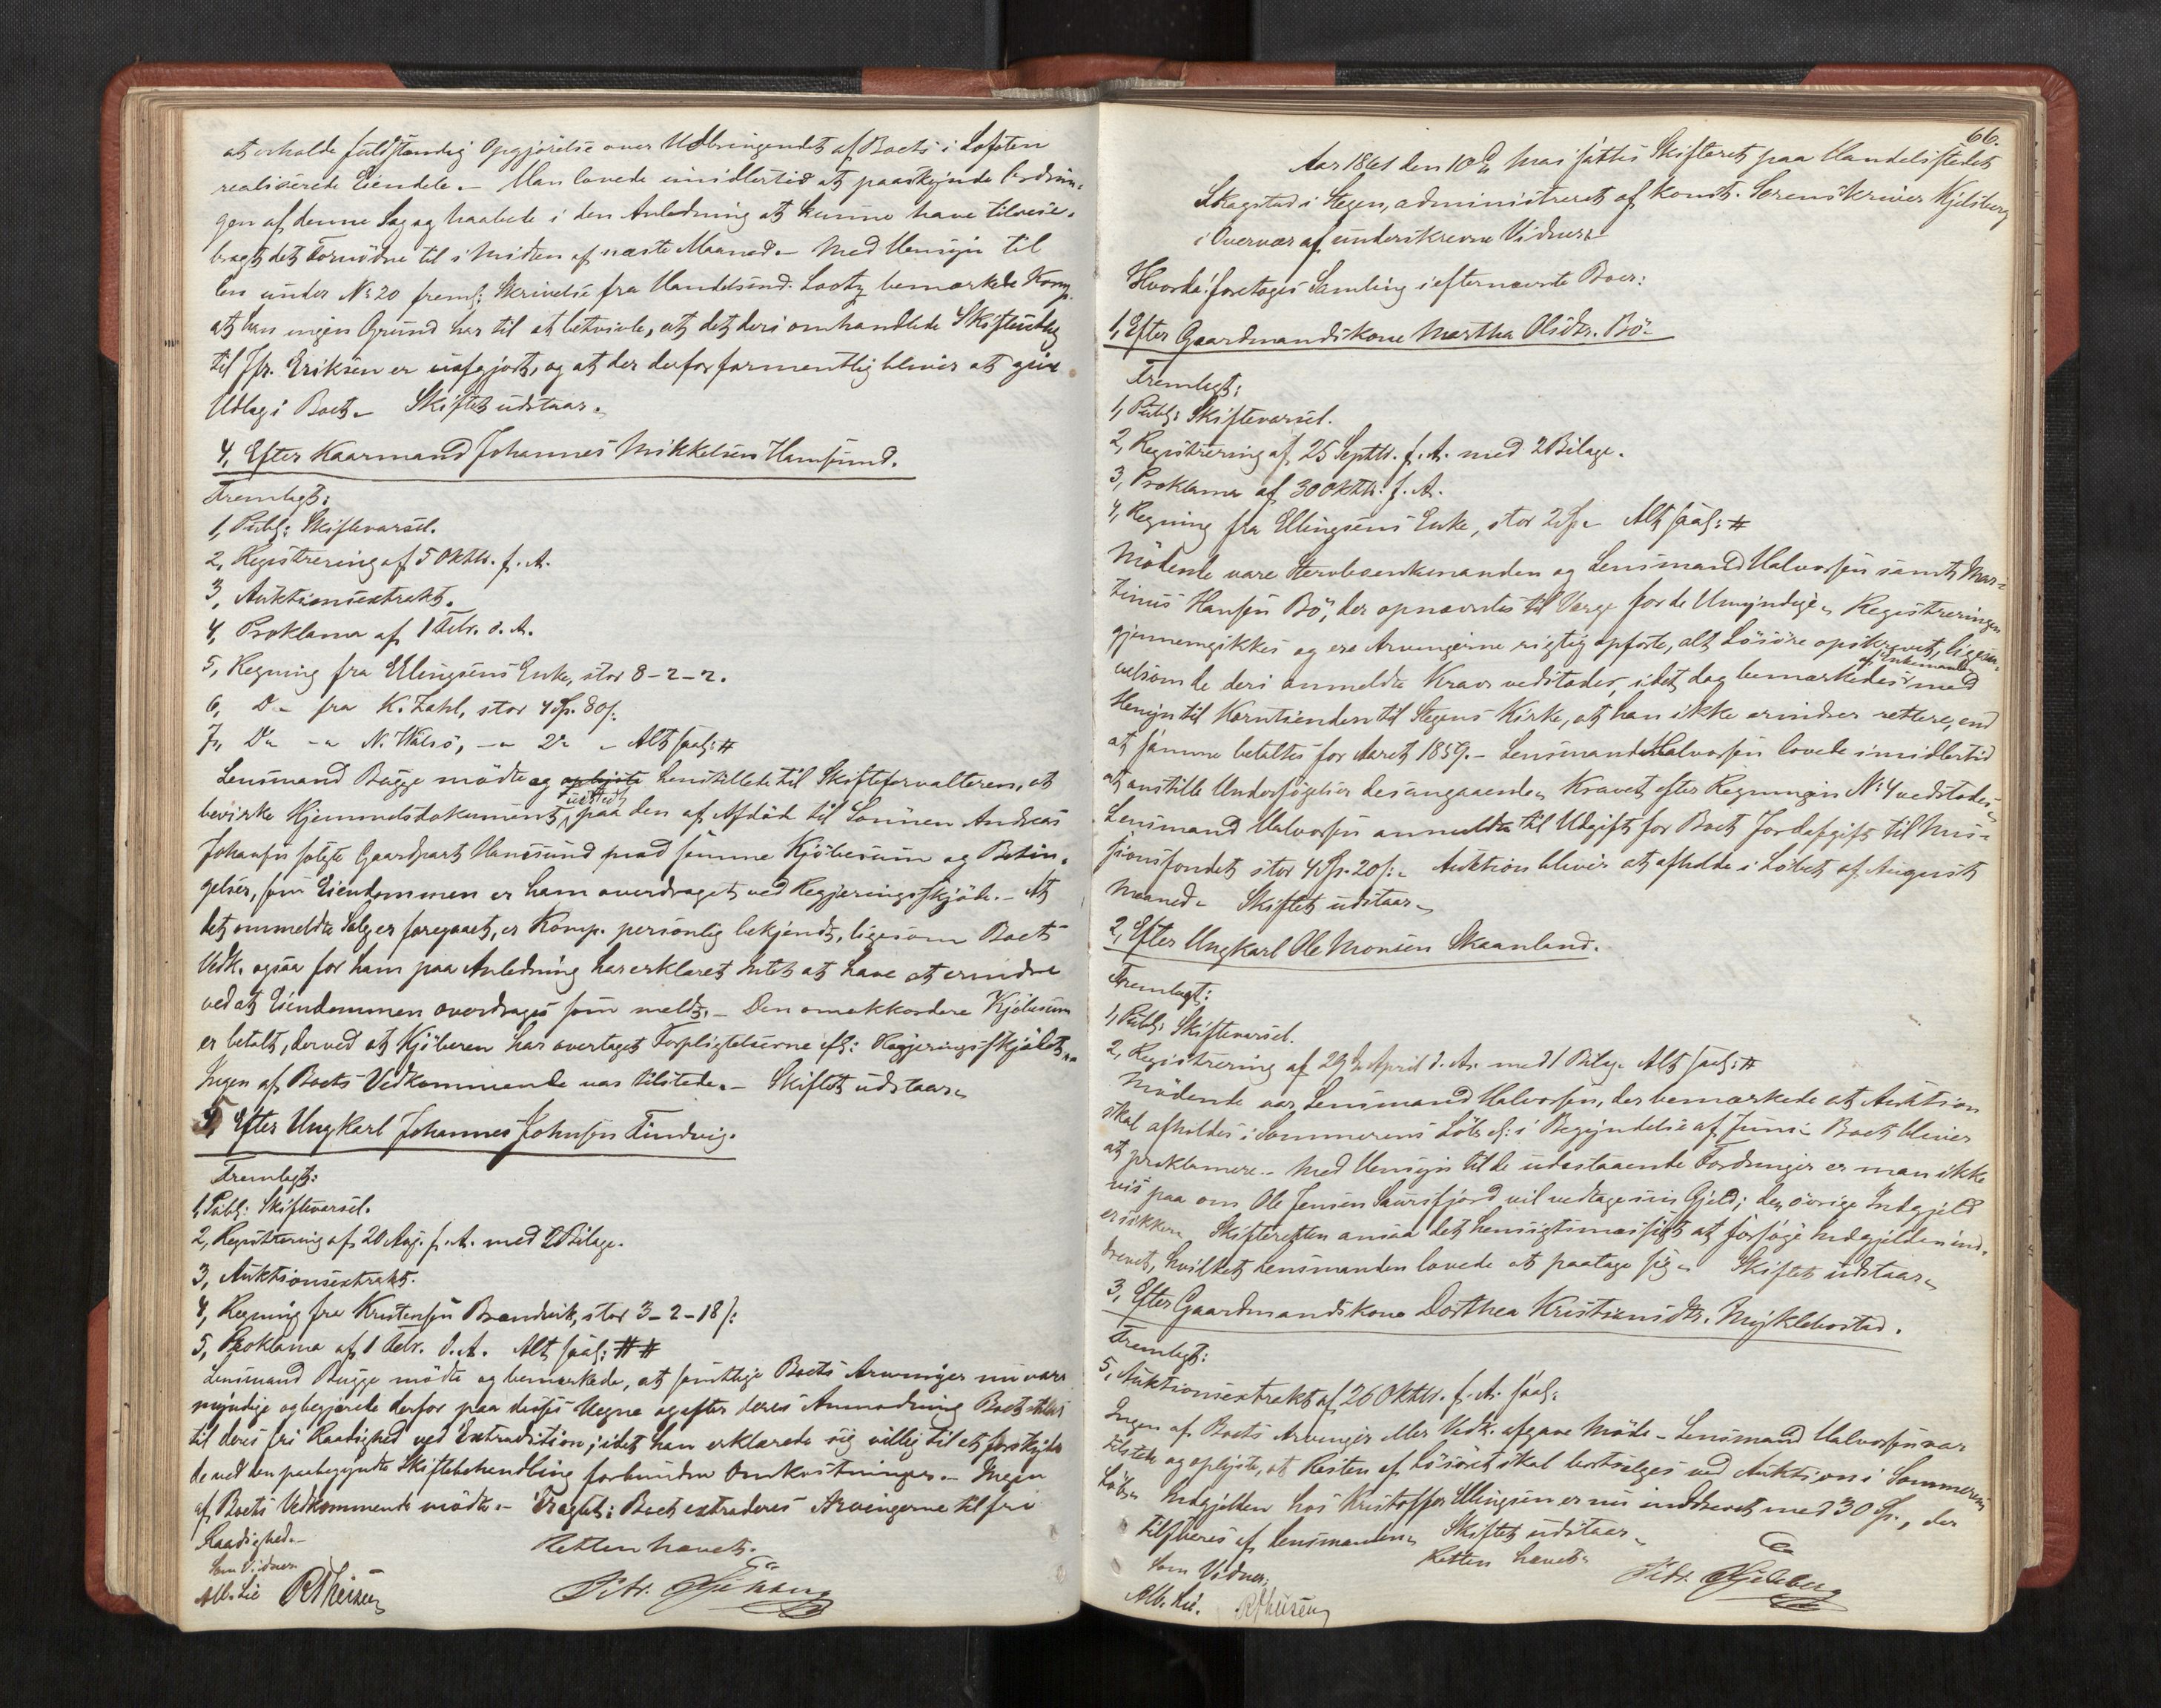 at erholde fuldstændig Opgjørelse over Udbringendet af Boets i Lofoten
realiserede Eiendele. – Man lovede imidlertid at paaskynde Ordnin-
gen af denne Sag og haabede i den Anledning at kunne have tilveie-
bragt det Fornödne til i Midten af næste Maaned. – Med Hensyn til
den under No 20 freml: Skrivelse fra Handelsmd. Lootz bemærkede Komp.
at han ingen Grund har til at betvivle, at det deri omhandlede Skifteudlæg
til Jfr. Eriksen er uafgjort, og at der derfor formentlig bliver at give
Udlæg i Boet. – Skiftet udstaar.
4, Efter Kaarmand Johannes Mikkelsen Hamsund.
Fremlagt:
1, Publ: Skiftevarsel.
2, Registrering af 5 Oktbr. f. A.
3, Auktionsextrakt.
4, Proklama af 1 Febr. d. A.
5, Regning fra Ellingsens Enke, stor 8-2-2.
6, Do fra K. Zahl, stor 4 Sp. 80 s:
7, Do – N. Walsö, – 2 – Alt saal: #
Lensmand Bugge mödte og oplyste henstillede til Skifteforvalteren, at
bevirke Hjemmelsdokument udstedt paa den af Afdöde til Sönnen Andreas
Johansen solgte Gaardpart Hamsund mod samme Kjöbesum og Betin-
gelser, som Eiendommen er ham overdraget ved Regjeringsskjöde. – At
det ommeldte Salg er foregaaet, er Komp. personlig bekjendt, ligesom Boets
Vedk. ogsaa for ham paa Anledning har erklæret Intet at have at erindre
ved at Eiendommen overdrages som meldt. – Den omakkordere Kjöbesum
er betalt, derved at Kjöberen har overtaget Forpligtelserne eft: Regjeringsskjödet.
Ingen af Boets Vedkommende var tilstede. – Skiftet udstaar.
5, Efter Ungkarl Johannes Johnsen Tindvig.
Fremlagt:
1, Publ: Skiftevarsel.
2, Registrering af 20 Aug. f. A. med 2 Bilage.
3, Auktionsextrakt.
4, Regning fra Kristensen Brændvik, stor 3-2-18 s:
5, Proklama af 1 Febr. d. A. Alt saal: ##
Lensmand Bugge mödte og bemærkede, at samtlige Boets Arvinger nu vare
myndige og begjærede derfor paa disses Vegne og efter deres Anmodning Boet
til deres fri Raadighed ved Extradition; idet han erklærede sig villig til at forskyde
de ved den paabegyndte Skiftebehandling forbundne Omkostninger. – Ingen
af Boets Vedkommende mödte. – Eragtet: Boet extraderes Arvingerne til fri
Raadighed. –
Retten hævet.
Som Vidner
Alb. Lie RTheisen
Petr. Kjelsberg
66.
Aar 1861 den 10de Mai sattes Skifteret paa Handelsstedet
Skagstad i Stegen, administreret af konst. Sorenskriver Kjelsberg
i Overvær af underskrevne Vidner
Hvorda: foretoges Samling i efternævnte Boer:
1, Efter Gaardmandskone Martha Olsdtr. Bö.
Fremlagt:
1, Publ: Skiftevarsel.
2, Registrering af 25 Septbr. f. A. med 2 Bilage.
3, Proklama af 30 Oktbr. f. A.
4, Regning fra Ellingsens Enke, stor 2 Sp. Alt saal: #
Mödende vare Stervboenkemanden og Lensmand Halvorsen samt Mar-
tinus Hansen Bö, der opnævntes til Værge for de Umyndige. Registreringen
gjennemgikkes og ere Arvingerne rigtig opförte, alt Lösöre opskrevet, ligesaa-
velsom de deri anmeldte Krav vedstodes, idet dog bemærkedes af Enkemanden med
Hensyn til Korntienden til Stegens Kirke, at han ikke erindrer rettere, end
at samme betaltes for Aaret 1859. – Lensmand Halvorsen lovede imidlertid
at anstille Undersögelser desangaaende. Kravet efter Regningen No 4 vedstodes.
Lensmand Halvorsen anmeldte til Udgift for Boet Jordafgift til Mis-
sionsfondet stor 4 Sp. 20 s: – Auktion bliver at afholde i Löbet af August
Maaned. – Skiftet udstaar.
2, Efter Ungkarl Ole Monsen Skaanland.
Fremlagt:
1, Publ: Skiftevarsel.
2, Registrering af 29de April d. A. med 1 Bilag. Alt saal: #
Mödende var Lensmand Halvorsen, der bemærkede at Auktion
skal afholdes i Sommerens Löb el: i Begyndelse af Juni. Boet bliver
at proklamere. – Med Hensyn til de udestaaende Fordringer er man ikke
vis paa om Ole Jensen Saursfjord vil vedtage sin Gjeld; den övrige Indgjeld
er sikker. Skifteretten ansaa det hensigtsmæssigt at forsöge Indgjelden ind-
drevet, hvilket Lensmanden lovede at paatage sig. Skiftet udstaar.
3, Efter Gaardmandskone Dorthea Kristiansdtr. Myklebostad.
Fremlagt:
5, Auktionsextrakt af 26 Oktbr. f. A. saal:
Ingen af Boets Arvinger eller Vedk. afgave Möde. – Lensmand Halvorsen var
tilstede og oplyste, at Resten af Lösöret skal bortsælges ved Auktion i Sommerens
Löb. Indgjelden hos Kristoffer Ellingsen er nu inddrevet med 30 Sp., der
tilsvares af Lensmanden. Skiftet udstaar.
Retten hævet.
Som Vidner:
Alb. Lie. RTheisen
Petr. Kjelsberg